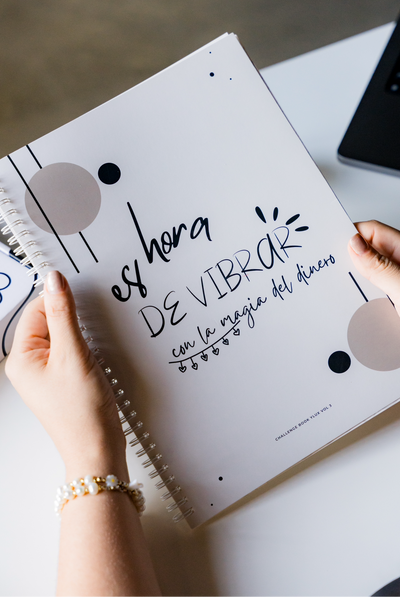 es hora
DE VIBRAR
con la magia del dinero
CHALLENGE BOOK YLUX VOL 2